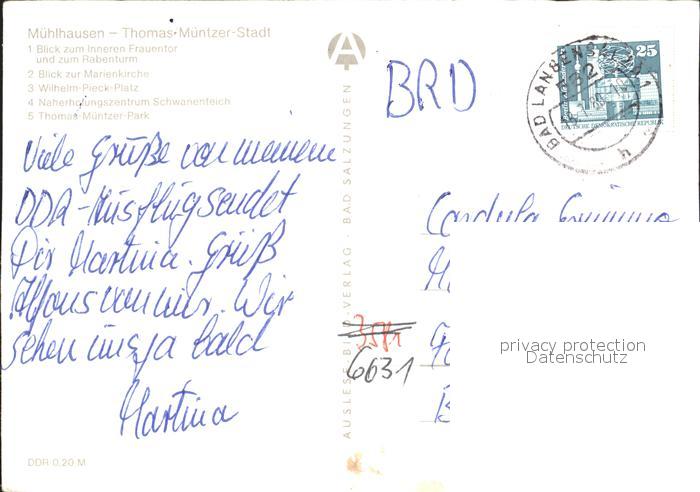 Mühlhausen – Thomas-Müntzer-Stadt
1 Blick zum Inneren Frauentor
und zum Rabenturm
2 Blick zur Marienkirche
3 Wilhelm-Pieck-Platz
4 Naherholungszentrum Schwanenteich
5 Thomas-Müntzer-Park
Viele Grüße von meinem
DDR-Ausflug sendet
Dir Martina. Grüß
Alfons von mir. Wir
sehen uns ja bald
Martina
DDR 0,20 M
BAD SALZUNGEN
BRD
25
DEUTSCHE DEMOKRATISCHE REPUBLIK
BAD LANGENSALZA 1
Cordula
3581
6631
privacy protection
Datenschutz